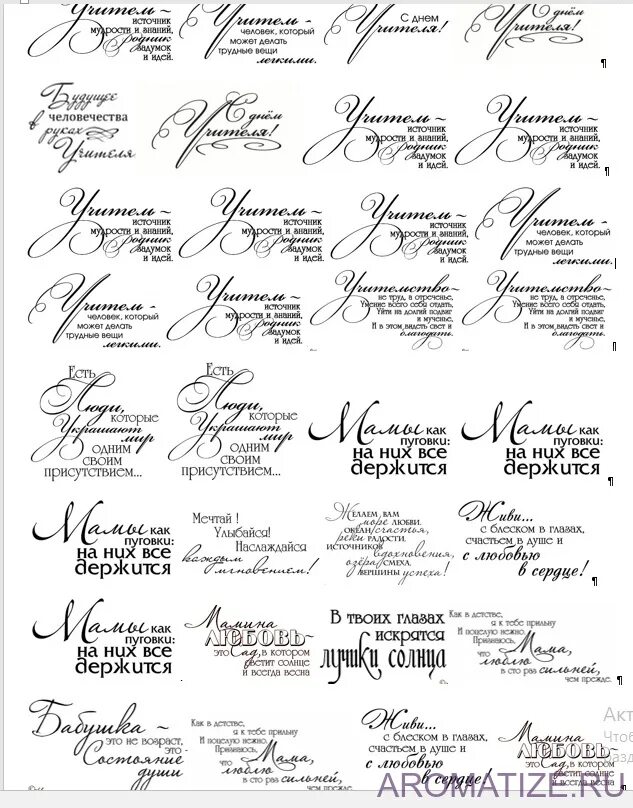 Учитель ~
источник
мудрости и знаний,
родник
задумок
и идей.
Учитель -
человек, который
может делать
трудные вещи
легкими.
С днем
Учителя!
С днем
Учителя!
¶
Будущее
человечества
в руках
Учителя
С днём
Учителя!
Учитель ~
источник
мудрости и знаний,
родник
задумок
и идей.
Учитель ~
источник
мудрости и знаний,
родник
задумок
и идей.
¶
Учитель ~
источник
мудрости и знаний,
родник
задумок
и идей.
Учитель ~
источник
мудрости и знаний,
родник
задумок
и идей.
Учитель ~
источник
мудрости и знаний,
родник
задумок
и идей.
Учитель -
человек, который
может делать
трудные вещи
легкими.
Учитель -
человек, который
может делать
трудные вещи
легкими.
Учитель ~
источник
мудрости и знаний,
родник
задумок
и идей.
Учительство~
не труд, а отреченье,
Умение всего себя отдать,
Уйти на долгий подвиг
и мученье,
И в этом видеть свет и
благодать.
Учительство~
не труд, а отреченье,
Умение всего себя отдать,
Уйти на долгий подвиг
и мученье,
И в этом видеть свет и
благодать.
¶
Есть
Люди,
которые
Украшают мир
одним
своим
присутствием...
Есть
Люди,
которые
Украшают мир
одним
своим
присутствием...
Мамы как
пуговки:
на них все
держится
Мамы как
пуговки:
на них все
держится
¶
Мамы как
пуговки:
на них все
держится
Мечтай !
Улыбайся!
Наслаждайся
каждым
мгновением!
Желаем вам
море любви,
океан счастья,
реки радости,
источников
вдохновения,
озёра смеха,
вершины успеха!
Живи...
с блеском в глазах,
счастьем в душе и
с любовью
в сердце!
¶
Мамы как
пуговки:
на них все
держится
Мамина
любовь~
это Сад, в котором
светит солнце
и всегда весна
В твоих глазах
искрятся
лучики солнца
Как в детстве,
я к тебе прильну
И поцелую нежно.
Признаюсь,
Мама,
что
люблю
в сто раз сильней,
чем прежде.
¶
Бабушка ~
это не возраст,
это~
Состояние
души
Как в детстве,
я к тебе прильну
И поцелую нежно.
Признаюсь,
Мама,
что
люблю
в сто раз сильней,
чем прежде.
Живи...
с блеском в глазах,
счастьем в душе и
с любовью
в сердце!
Мамина
любовь~
это Сад, в котором
светит солнце
и всегда весна
¶
Акт
Чтоб
разд
AROMATIZE.RU